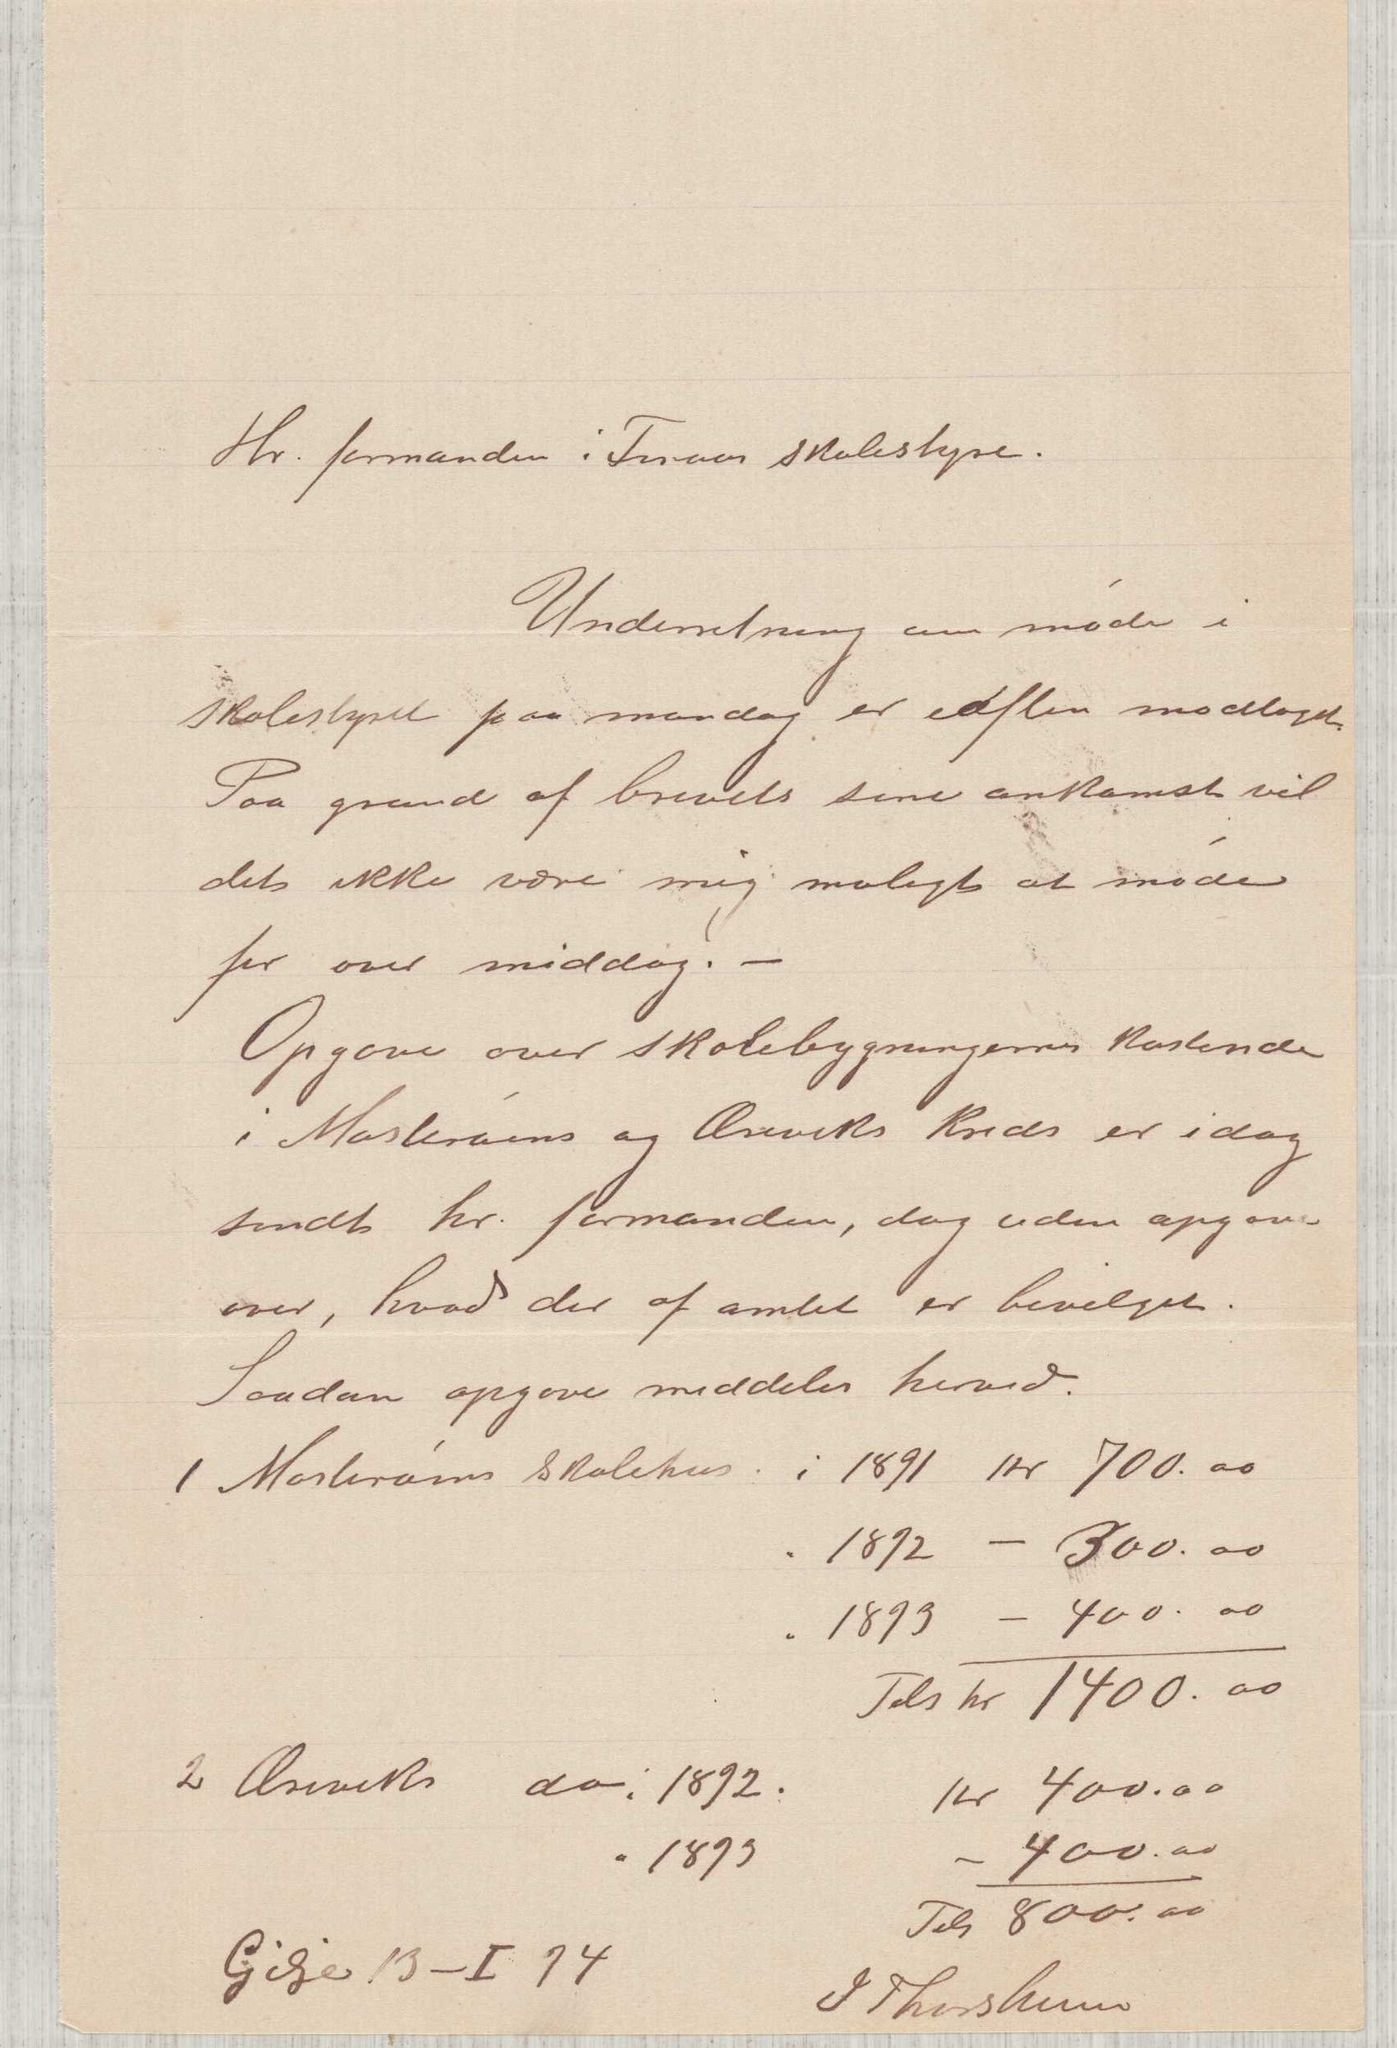 Hr. formanden i Finaas skolestyre.
Underretning om møde i
skolestyret paa mandag er iaften modtaget.
Paa grund af brevets sene ankomst vil
det ikke være mig muligt at møde
før over middag. —
Opgave over skolebygningernes kostende
i Mosterøens og Øreviks kreds er idag
sendt hr. formanden, dog uden opgave
over, hvad der af amtet er bevilget.
Saadan opgave meddeles herved.
1 Mosterøens skolehus. i 1891 Kr 700.00
" 1892 — 300.00
" 1893 — 400.00
Tils kr 1400.00
2 Øreviks do i 1892. Kr 400.00
" 1893 — 400.00
Tils 800.00
Gilje 13–I 94
J Thorsheim